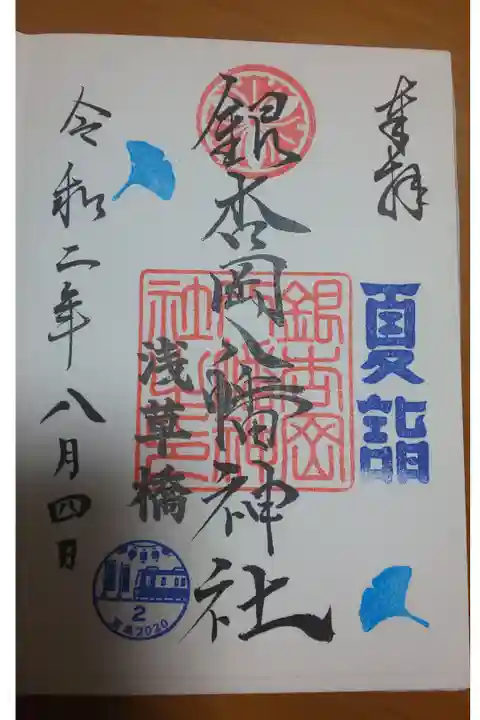 奉拝
夏詣
銀杏岡八幡神社
浅草橋
令和二年八月四日
2
夏詣2020